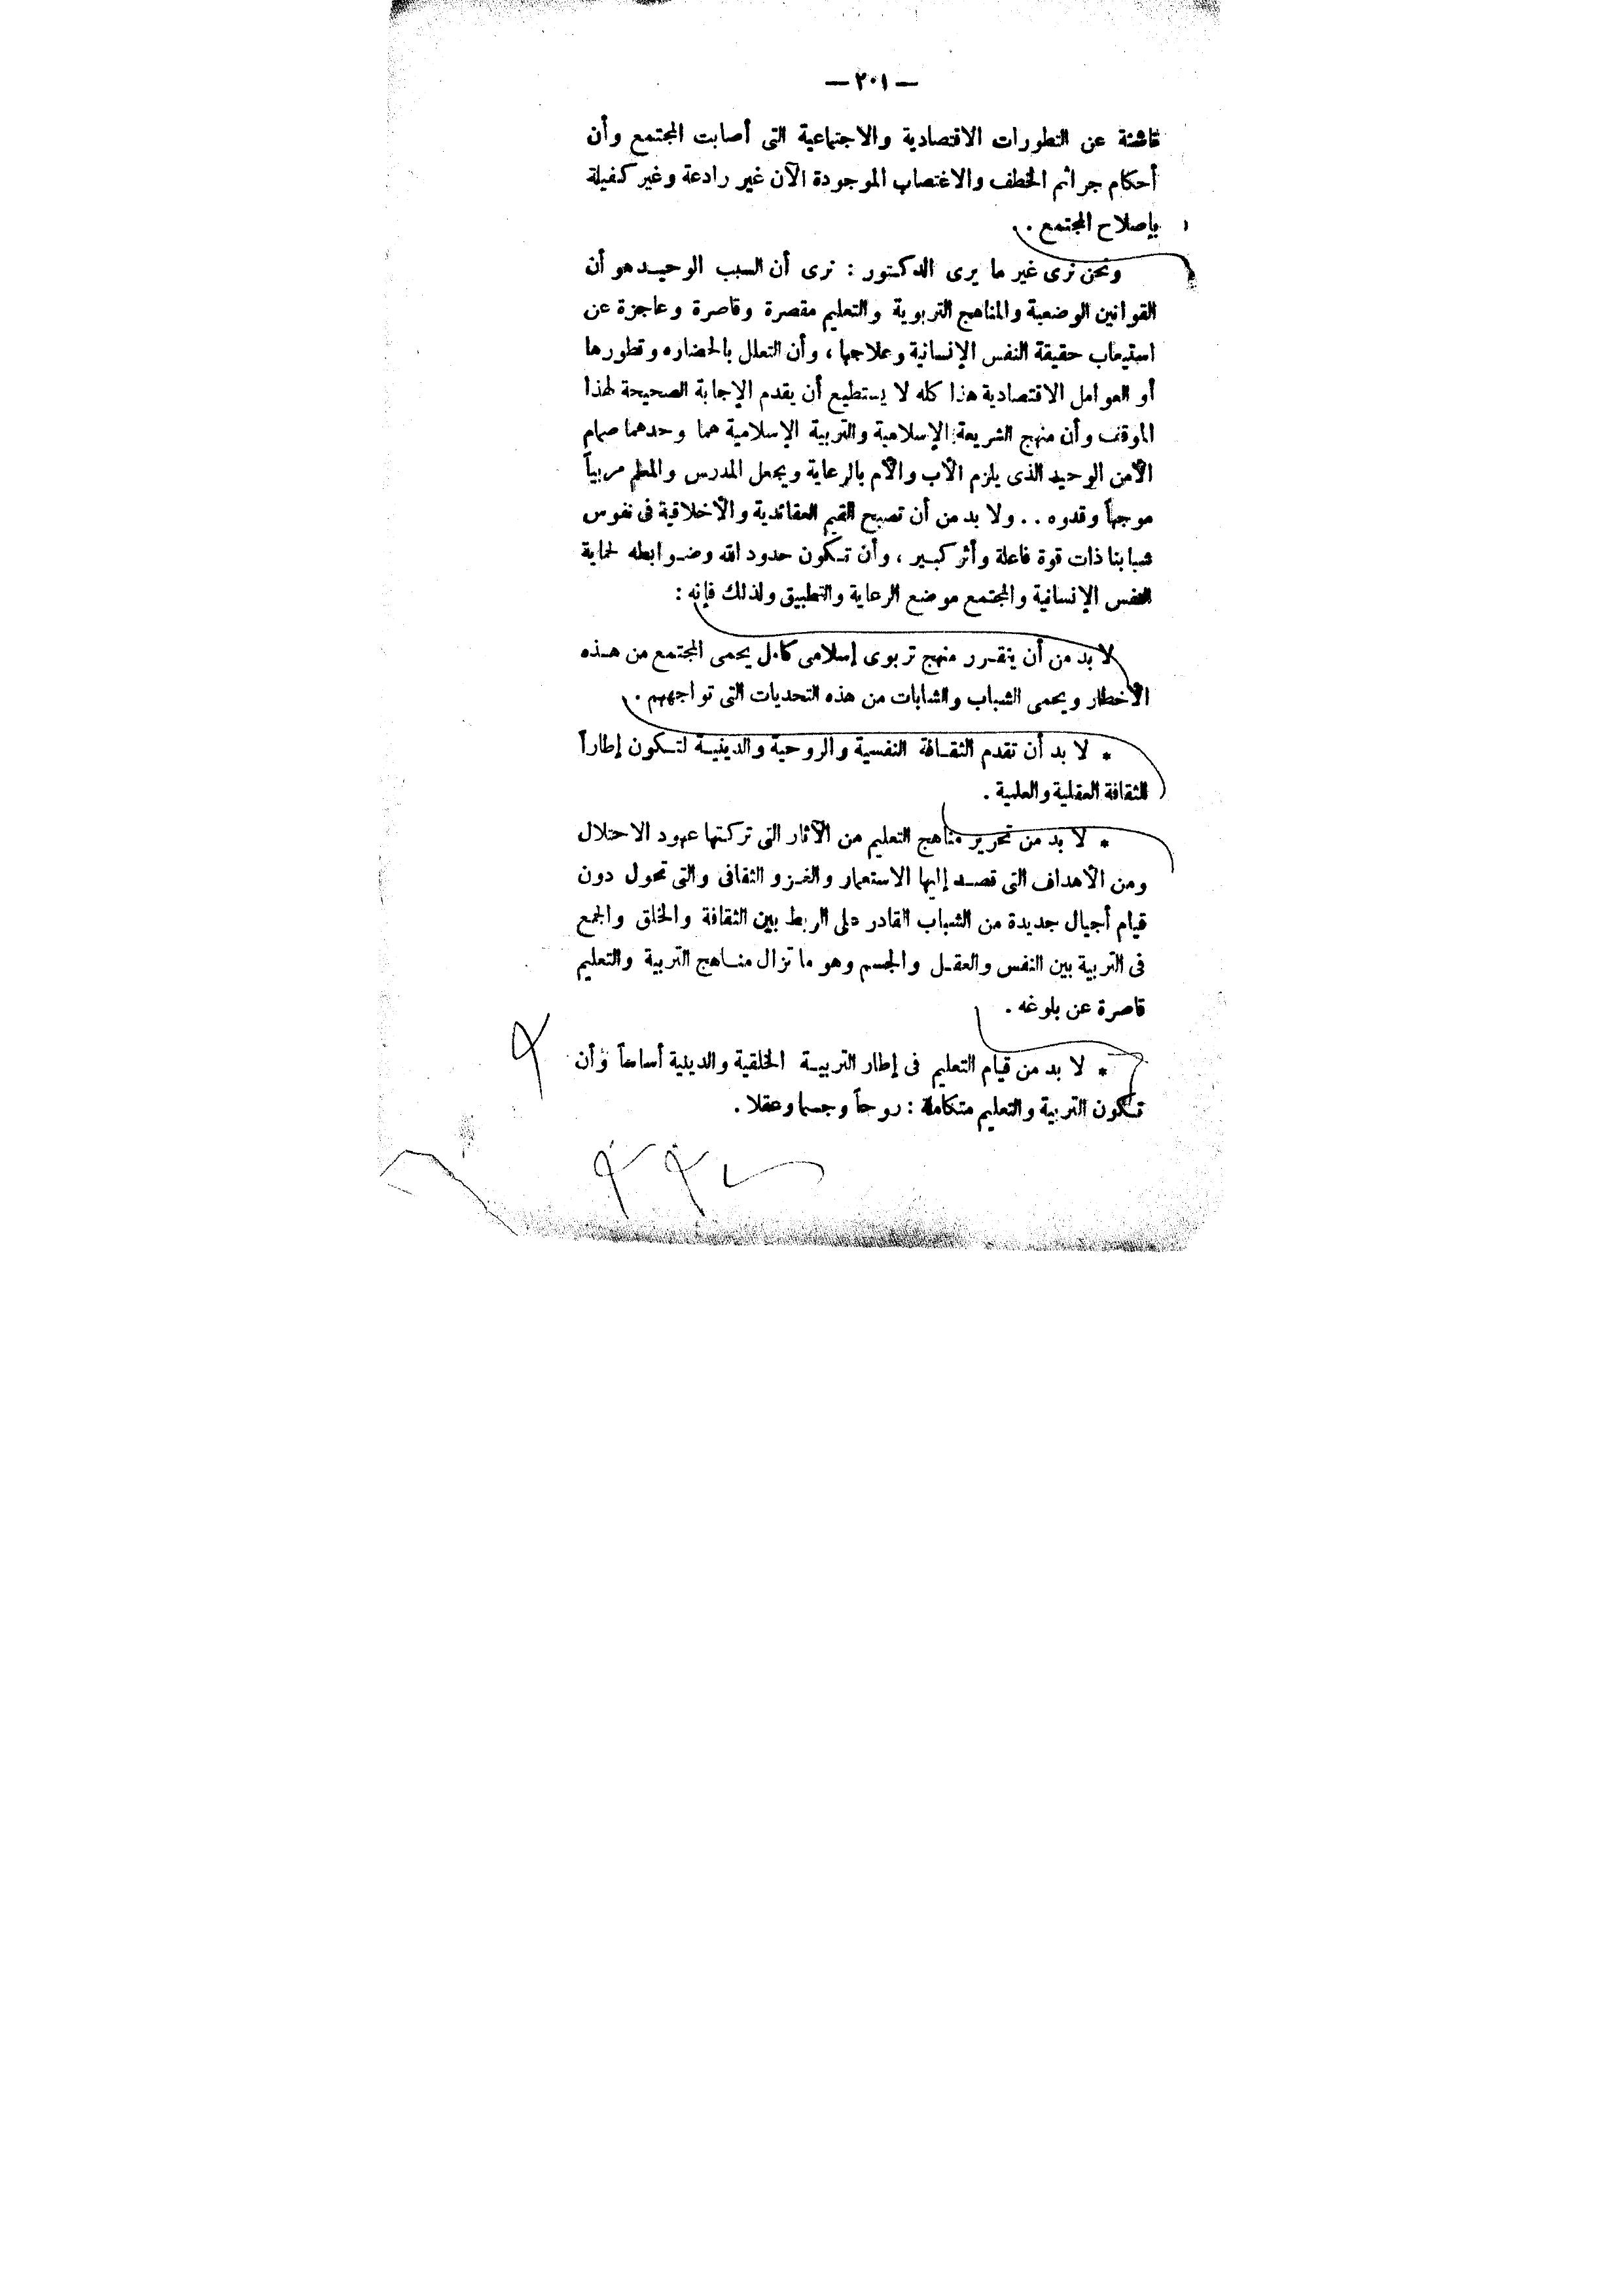 — ٢٠١ —
ناشئة عن التطورات الاقتصادية والاجتماعية التى أصابت المجتمع وأن
أحكام جرائم الخطف والاغتصاب الموجودة الآن غير رادعة وغير كفيلة
بإصلاح المجتمع .
ونحن نرى غير ما يرى الدكتور : نرى أن السبب الوحيد هو أن
القوانين الوضعية والمناهج التربوية والتعليم مقصرة وقاصرة وعاجزة عن
استيعاب حقيقة النفس الإنسانية وعلاجها ، وأن التعلل بالحضاره وتطورها
أو العوامل الاقتصادية هذا كله لا يستطيع أن يقدم الإجابة الصحيحة لهذا
الموقف وأن منهج الشريعة الإسلامية والتربية الإسلامية هما وحدهما صمام
الأمن الوحيد الذى يلزم الأب والأم بالرعاية ويجعل المدرس والمعلم مربياً
موجهاً وقدوه . . ولا بد من أن تصبح القيم العقائدية والأخلاقية فى نفوس
شبابنا ذات قوة فاعلة وأثر كبير ، وأن تكون حدود الله وضوابطه لحماية
النفس الإنسانية والمجتمع موضع الرعاية والتطبيق ولذلك فإنه :
لا بد من أن يتقرر منهج تربوى إسلامى كامل يحمى المجتمع من هذه
الأخطار ويحمى الشباب والشابات من هذه التحديات التى تواجههم .
* لا بد أن تقدم الثقافة النفسية والروحية والدينية لتكون إطاراً
للثقافة العقلية والعلمية .
* لا بد من تحرير مناهج التعليم من الآثار التى تركتها عهود الاحتلال
ومن الأهداف التى قصد إليها الاستعمار والغزو الثقافى والتى تحول دون
قيام أجيال جديدة من الشباب القادر على الربط بين الثقافة والخلق والجمع
فى التربية بين النفس والعقل والجسم وهو ما تزال مناهج التربية والتعليم
قاصرة عن بلوغه .
* لا بد من قيام التعليم فى إطار التربية الخلقية والدينية أساساً وأن
تكون التربية والتعليم متكاملة : روحاً وجسما وعقلا .